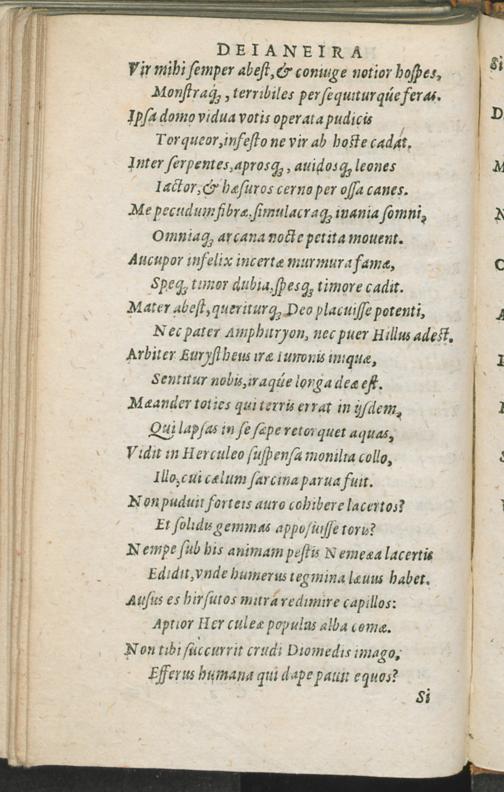 DEIANEIRA
Vir mihi semper abest, & coniuge notior hospes,
Monstraq́; , terribiles persequiturq́ue feras.
Ipsa domo vidua votis operata pudicis
Torqueor, infesto ne vir ab hoste cadat.
Inter serpentes, aprosq́; , auidosq́; leones
Iactor, & hæsuros cerno per ossa canes.
Me pecudum fibræ, simulacraq́; inania somni,
Omniaq́; arcana nocte petita mouent.
Aucupor infelix incertæ murmura famæ,
Speq́; timor dubia, spesq́; timore cadit.
Mater abest, queriturq́; Deo placuisse potenti,
Nec pater Amphitryon, nec puer Hillus adest.
Arbiter Eurystheus iræ Iunonis iniquæ,
Sentitur nobis, iraq́ue longa deæ est.
Mæander toties qui terris errat in ijsdem,
Qui lapsas in se sæpe retorquet aquas,
Vidit in Herculeo suspensa monilia collo,
Illo, cui cælum sarcina parua fuit.
Non puduit forteis auro cohibere lacertos?
Et solidis gemmas apposuisse toris?
Nempe sub his animam pestis Nemeæa lacertis
Edidit, vnde humerus tegmina læuus habet.
Ausus es hirsutos mitra redimire capillos:
Aptior Herculeæ populus alba comæ.
Non tibi succurrit crudi Diomedis imago,
Efferus humana qui dape pauit equos?
Si
Si
D
M
N
C